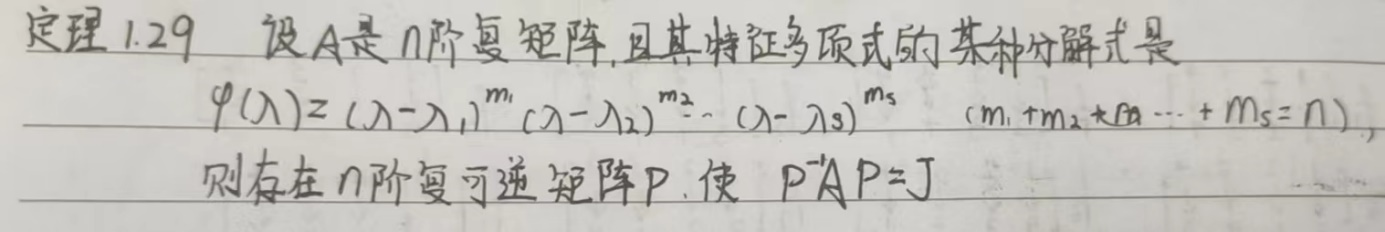 定理1.29 设A是n阶复矩阵,且其特征多项式的某种分解式是
φ(λ)=(λ-λ₁)^m₁(λ-λ₂)^m₂…(λ-λs)^ms (m₁+m₂+…+ms=n),
则存在n阶复可逆矩阵P.使 P⁻¹AP=J